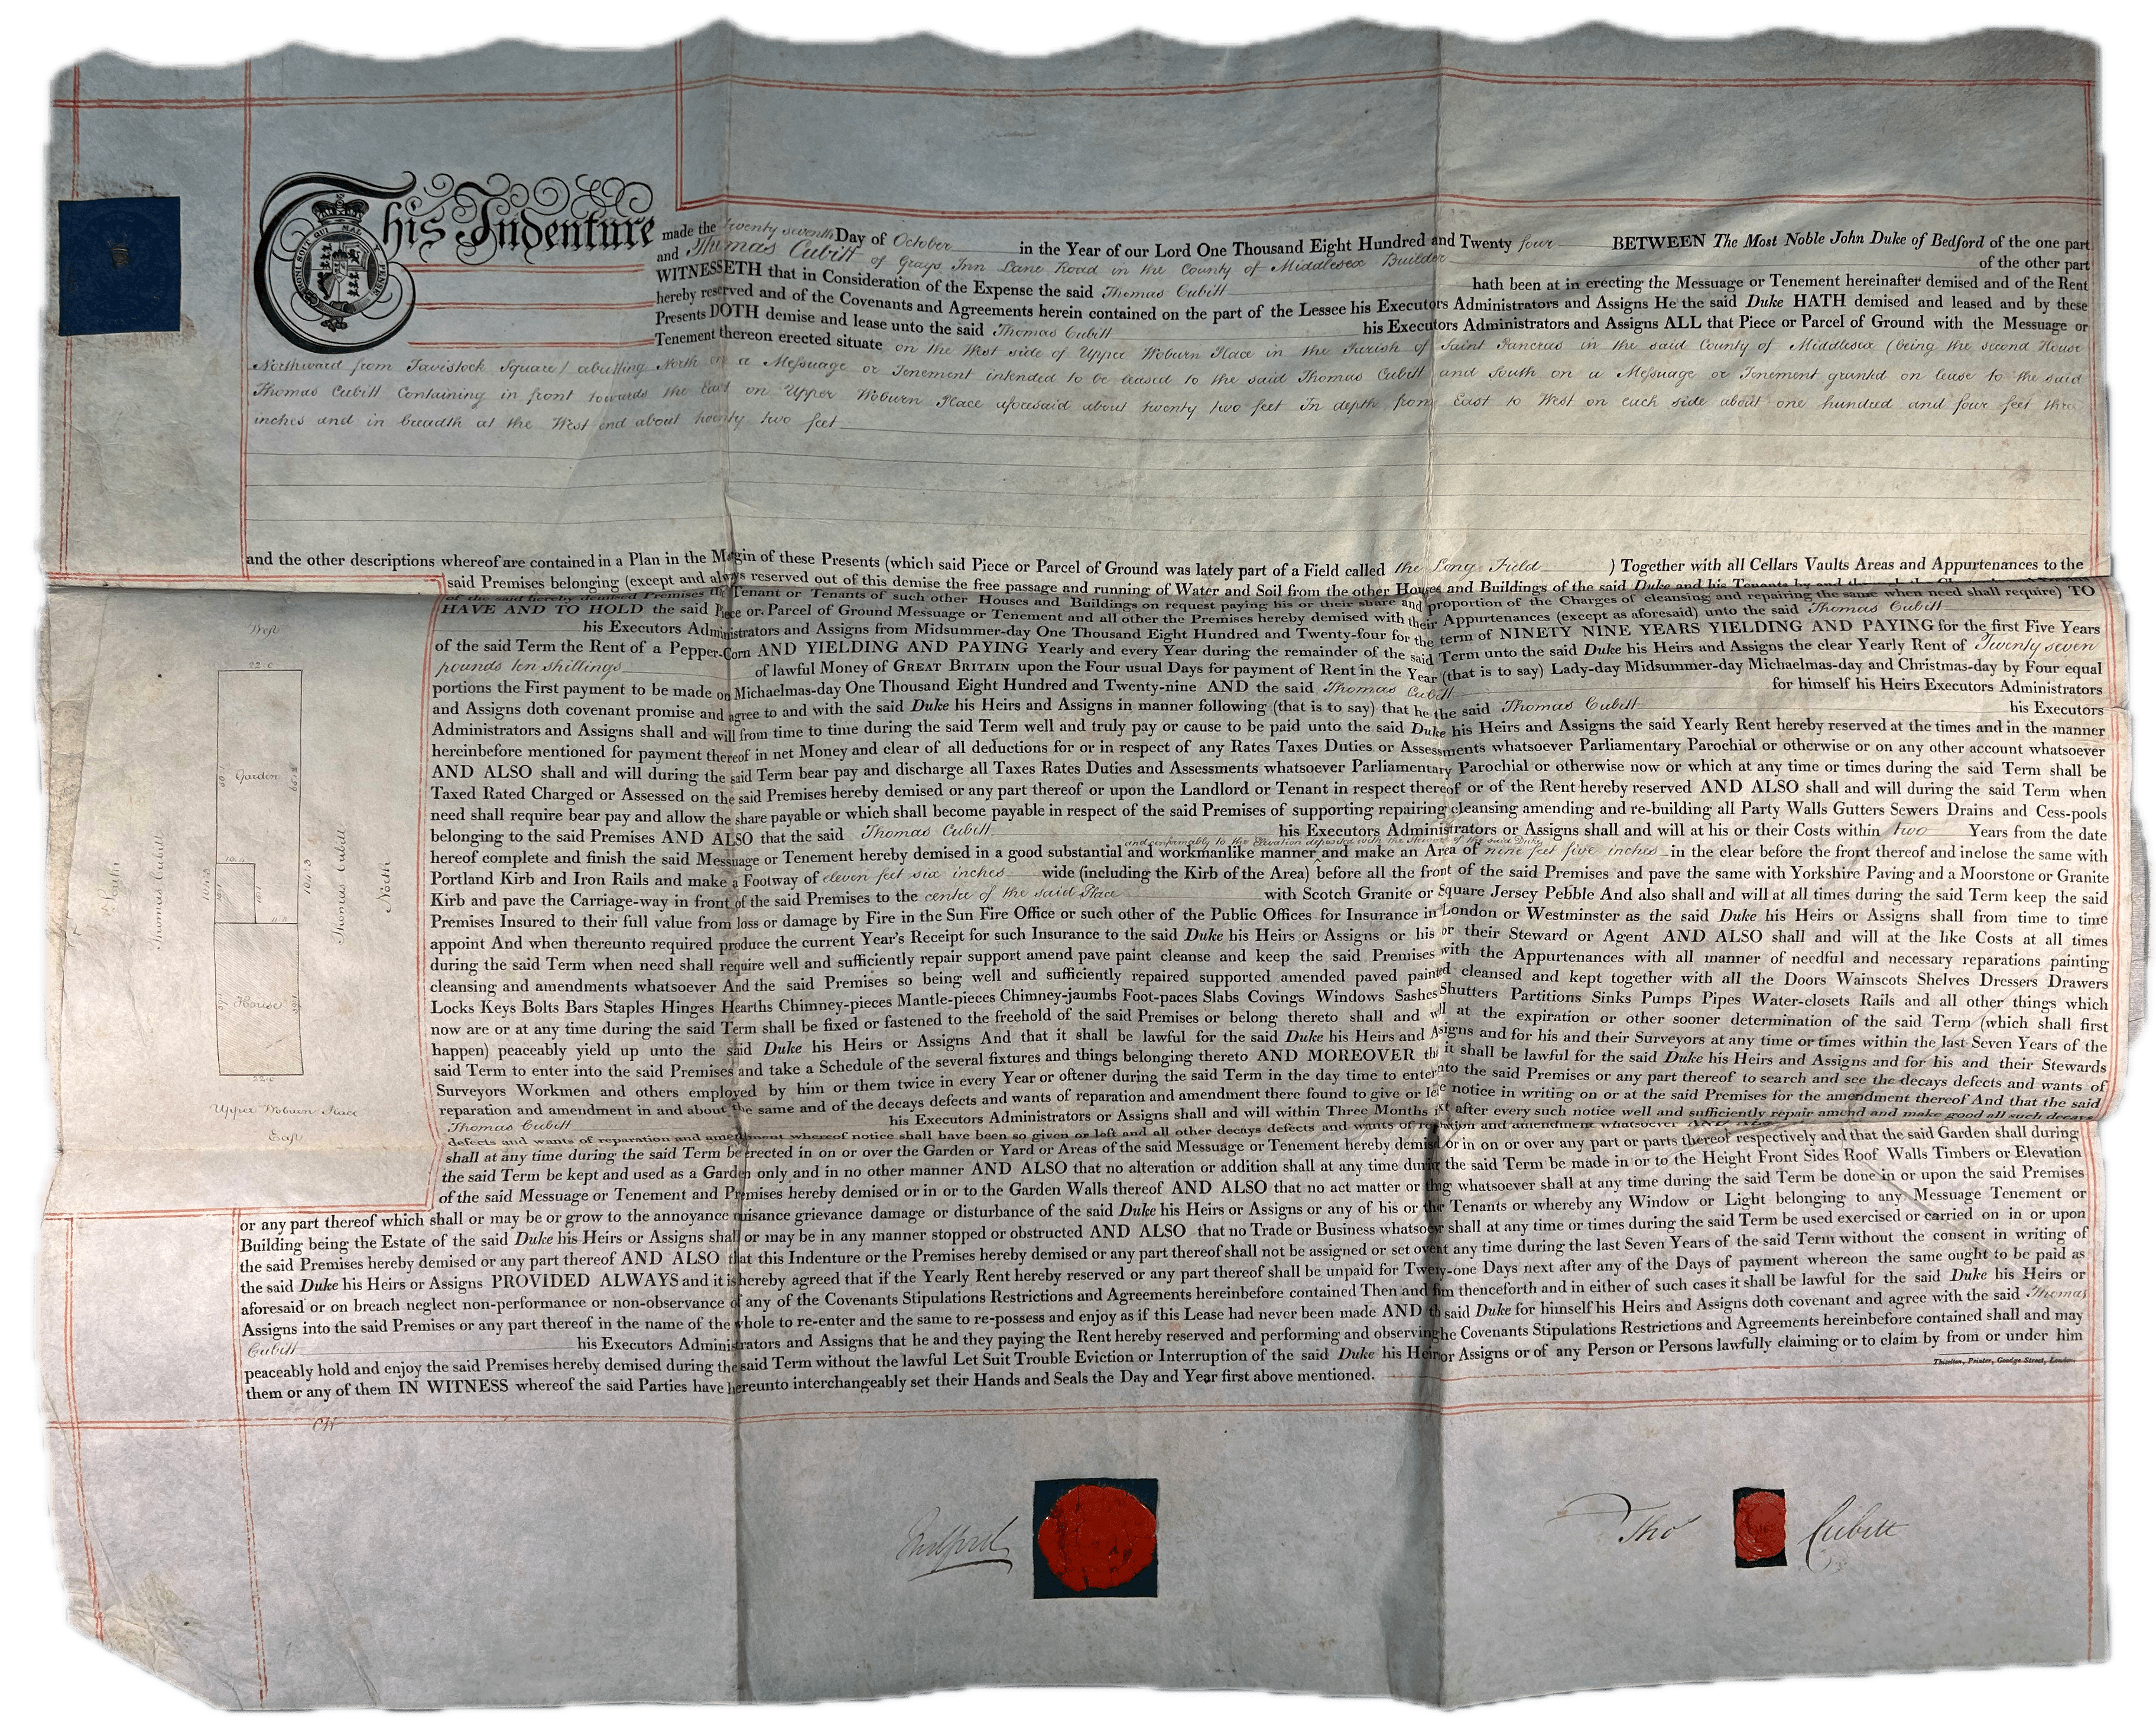 This Indenture made the twenty seventh Day of October in the Year of our Lord One Thousand Eight Hundred and Twenty four BETWEEN The Most Noble John Duke of Bedford of the one part
and Thomas Cubitt of Grays Inn Lane Road in the County of Middlesex Builder of the other part
WITNESSETH that in Consideration of the Expense the said Thomas Cubitt hath been at in erecting the Messuage or Tenement hereinafter demised and of the Rent
hereby reserved and of the Covenants and Agreements herein contained on the part of the Lessee his Executors Administrators and Assigns He the said Duke HATH demised and leased and by these
Presents DOTH demise and lease unto the said Thomas Cubitt his Executors Administrators and Assigns ALL that Piece or Parcel of Ground with the Message or
Tenement thereon erected situate on the West side of Upper Woburn Place in the Parish of Saint Pancras in the said County of Middlesex (being the second House
Northward from Tavistock Square) abutting North on a Messuage or Tenement intended to be leased to the said Thomas Cubitt and South on a Messuage or Tenement granted on lease to the said
Thomas Cubitt Containing in front towards the East on Upper Woburn Place aforesaid about twenty two feet In depth from East to West on each side about one hundred and four feet three
inches and in breadth at the West end about twenty two feet
and the other descriptions whereof are contained in a Plan in the Margin of these Presents (which said Piece or Parcel of Ground was lately part of a Field called the Long Field ) Together with all Cellars Vaults Areas and Appurtenances to the
said Premises belonging (except and always reserved out of this demise the free passage and running of Water and Soil from the other Houses and Buildings of the said Duke and his Tenants by and through
of the said hereby demised Premises the Tenant or Tenants of such other Houses and Buildings on request paying his or their share and proportion of the Charges of cleansing and repairing the same when need shall require) TO
HAVE AND TO HOLD the said Piece or Parcel of Ground Messuage or Tenement and all other the Premises hereby demised with their Appurtenances (except as aforesaid) unto the said Thomas Cubitt
his Executors Administrators and Assigns from Midsummer-day One Thousand Eight Hundred and Twenty-four for the term of NINETY NINE YEARS YIELDING AND PAYING for the first Five Years
of the said Term the Rent of a Pepper-Corn AND YIELDING AND PAYING Yearly and every Year during the remainder of the said Term unto the said Duke his Heirs and Assigns the clear Yearly Rent of Twenty seven
pounds ten shillings of lawful Money of GREAT BRITAIN upon the Four usual Days for payment of Rent in the Year (that is to say) Lady-day Midsummer-day Michaelmas-day and Christmas-day by Four equal
portions the First payment to be made on Michaelmas-day One Thousand Eight Hundred and Twenty-nine AND the said Thomas Cubitt for himself his Heirs Executors Administrators
and Assigns doth covenant promise and agree to and with the said Duke his Heirs and Assigns in manner following (that is to say) that he the said Thomas Cubitt his Executors
Administrators and Assigns shall and will from time to time during the said Term well and truly pay or cause to be paid unto the said Duke his Heirs and Assigns the said Yearly Rent hereby reserved at the times and in the manner
hereinbefore mentioned for payment thereof in net Money and clear of all deductions for or in respect of any Rates Taxes Duties or Assessments whatsoever Parliamentary Parochial or otherwise or on any other account whatsoever
AND ALSO shall and will during the said Term bear pay and discharge all Taxes Rates Duties and Assessments whatsoever Parliamentary Parochial or otherwise now or which at any time or times during the said Term shall be
Taxed Rated Charged or Assessed on the said Premises hereby demised or any part thereof or upon the Landlord or Tenant in respect thereof or of the Rent hereby reserved AND ALSO shall and will during the said Term when
need shall require bear pay and allow the share payable or which shall become payable in respect of the said Premises of supporting repairing cleansing amending and re-building all Party Walls Gutters Sewers Drains and Cess-pools
belonging to the said Premises AND ALSO that the said Thomas Cubitt his Executors Administrators or Assigns shall and will at his or their Costs within two Years from the date
and conformably to the Elevation deposited with the Steward of the said Duke
hereof complete and finish the said Messuage or Tenement hereby demised in a good substantial and workmanlike manner and make an Area of nine feet five inches in the clear before the front thereof and inclose the same with
Portland Kirb and Iron Rails and make a Footway of eleven feet six inches wide (including the Kirb of the Area) before all the front of the said Premises and pave the same with Yorkshire Paving and a Moorstone or Granite
Kirb and pave the Carriage-way in front of the said Premises to the centre of the said Place with Scotch Granite or Square Jersey Pebble And also shall and will at all times during the said Term keep the said
Premises Insured to their full value from loss or damage by Fire in the Sun Fire Office or such other of the Public Offices for Insurance in London or Westminster as the said Duke his Heirs or Assigns shall from time to time
appoint And when thereunto required produce the current Year's Receipt for such Insurance to the said Duke his Heirs or Assigns or his or their Steward or Agent AND ALSO shall and will at the like Costs at all times
during the said Term when need shall require well and sufficiently repair support amend pave paint cleanse and keep the said Premises with the Appurtenances with all manner of needful and necessary reparations painting
cleansing and amendments whatsoever And the said Premises so being well and sufficiently repaired supported amended paved painted cleansed and kept together with all the Doors Wainscots Shelves Dressers Drawers
Locks Keys Bolts Bars Staples Hinges Hearths Chimney-pieces Mantle-pieces Chimney-jaumbs Foot-paces Slabs Covings Windows Sashes Shutters Partitions Sinks Pumps Pipes Water-closets Rails and all other things which
now are or at any time during the said Term shall be fixed or fastened to the freehold of the said Premises or belong thereto shall and will at the expiration or other sooner determination of the said Term (which shall first
happen) peaceably yield up unto the said Duke his Heirs or Assigns And that it shall be lawful for the said Duke his Heirs and Assigns and for his and their Surveyors at any time or times within the last Seven Years of the
said Term to enter into the said Premises and take a Schedule of the several fixtures and things belonging thereto AND MOREOVER that it shall be lawful for the said Duke his Heirs and Assigns and for his and their Stewards
Surveyors Workmen and others employed by him or them twice in every Year or oftener during the said Term in the day time to enter into the said Premises or any part thereof to search and see the decays defects and wants of
reparation and amendment in and about the same and of the decays defects and wants of reparation and amendment there found to give or leave notice in writing on or at the said Premises for the amendment thereof And that the said
Thomas Cubitt his Executors Administrators or Assigns shall and will within Three Months next after every such notice well and sufficiently repair amend and make good all such decays
defects and wants of reparation and amendment whereof notice shall have been so given or left and all other decays defects and wants of reparation and amendment whatsoever
shall at any time during the said Term be erected in on or over the Garden or Yard or Areas of the said Messuage or Tenement hereby demised or in on or over any part or parts thereof respectively and that the said Garden shall during
the said Term be kept and used as a Garden only and in no other manner AND ALSO that no alteration or addition shall at any time during the said Term be made in or to the Height Front Sides Roof Walls Timbers or Elevation
of the said Messuage or Tenement and Premises hereby demised or in or to the Garden Walls thereof AND ALSO that no act matter or thing whatsoever shall at any time during the said Term be done in or upon the said Premises
or any part thereof which shall or may be or grow to the annoyance nuisance grievance damage or disturbance of the said Duke his Heirs or Assigns or any of his or their Tenants or whereby any Window or Light belonging to any Messuage Tenement or
Building being the Estate of the said Duke his Heirs or Assigns shall or may be in any manner stopped or obstructed AND ALSO that no Trade or Business whatsoever shall at any time or times during the said Term be used exercised or carried on in or upon
the said Premises hereby demised or any part thereof AND ALSO that this Indenture or the Premises hereby demised or any part thereof shall not be assigned or set over at any time during the last Seven Years of the said Term without the consent in writing of
the said Duke his Heirs or Assigns PROVIDED ALWAYS and it is hereby agreed that if the Yearly Rent hereby reserved or any part thereof shall be unpaid for Twenty-one Days next after any of the Days of payment whereon the same ought to be paid as
aforesaid or on breach neglect non-performance or non-observance of any of the Covenants Stipulations Restrictions and Agreements hereinbefore contained Then and from thenceforth and in either of such cases it shall be lawful for the said Duke his Heirs or
Assigns into the said Premises or any part thereof in the name of the whole to re-enter and the same to re-possess and enjoy as if this Lease had never been made AND the said Duke for himself his Heirs and Assigns doth covenant and agree with the said Thomas
Cubitt his Executors Administrators and Assigns that he and they paying the Rent hereby reserved and performing and observing the Covenants Stipulations Restrictions and Agreements hereinbefore contained shall and may
peaceably hold and enjoy the said Premises hereby demised during the said Term without the lawful Let Suit Trouble Eviction or Interruption of the said Duke his Heirs or Assigns or of any Person or Persons lawfully claiming or to claim by from or under him
them or any of them IN WITNESS whereof the said Parties have hereunto interchangeably set their Hands and Seals the Day and Year first above mentioned.
Thiselton, Printer, Goodge Street, London.
West
22.0
Garden
South
Thomas Cubitt
104.3
104.3
Thomas Cubitt
North
House
22.0
Upper Woburn Place
East
Bedford
Thos Cubitt